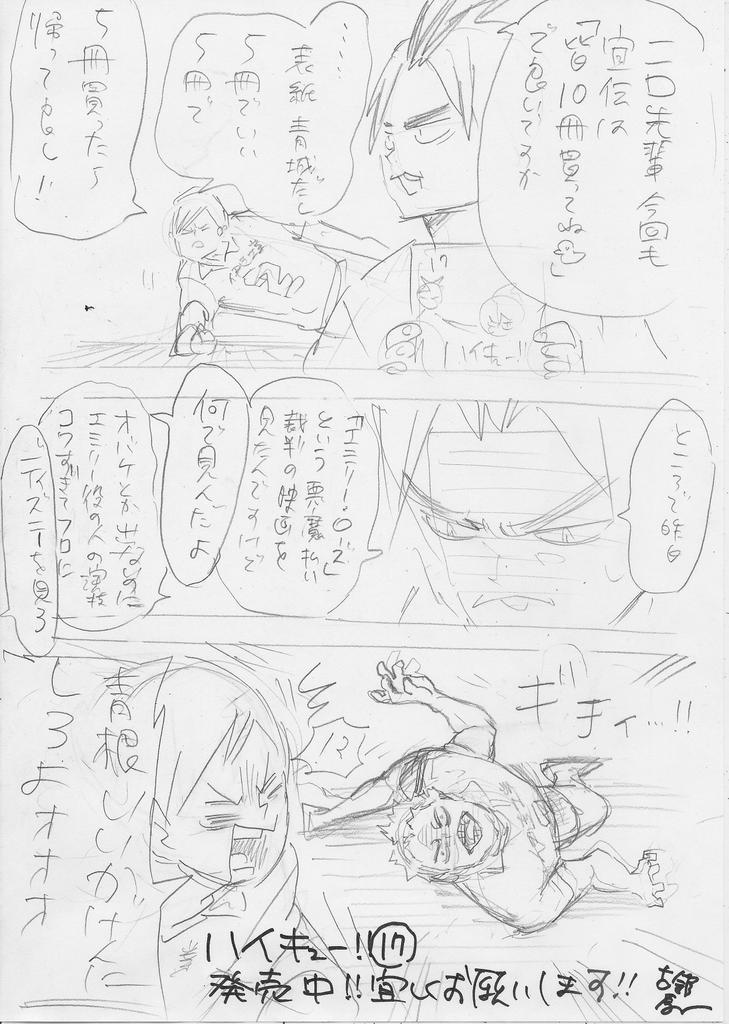 二口先輩 今回も
宣伝は
「皆10冊買ってね♡」
で良いですか
……
表紙青城だし
5冊でいい
5冊で
5冊買ったら
帰って良し!!
17
ハイキュー!!
ところで昨日
『エミリー・ローズ』
という悪魔払い
裁判の映画を
見たんですけど
何で見んだよ
オバケとか苦手なのに
エミリー役の人の演技
コワすぎてフロに
ディズニーを見ろ
ギチィ…!!
青根いいかげんに
しろよオオオ
ハイキュー!!⑰
発売中!!宜しくお願いします!!